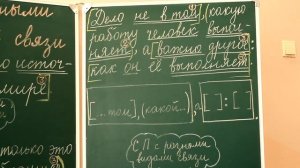 ными
связи
источ-
мире
только это
[Дело не в том], (какую
работу человек выпол-
няет), а [важно другое]:
[как он её выполняет].
[... том], (какой...), а [ ] : [ ]
СП с разными
видами связи